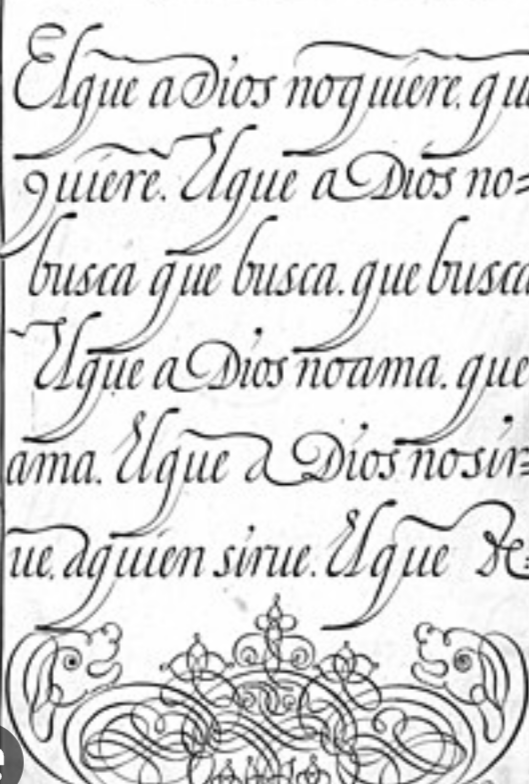 El que a Dios no quiere, qu
quiere. El que a Dios no=
busca que busca. que busca
El que a Dios no ama. que
ama. El que a Dios no sir=
ue, a quien sirue. El que de=